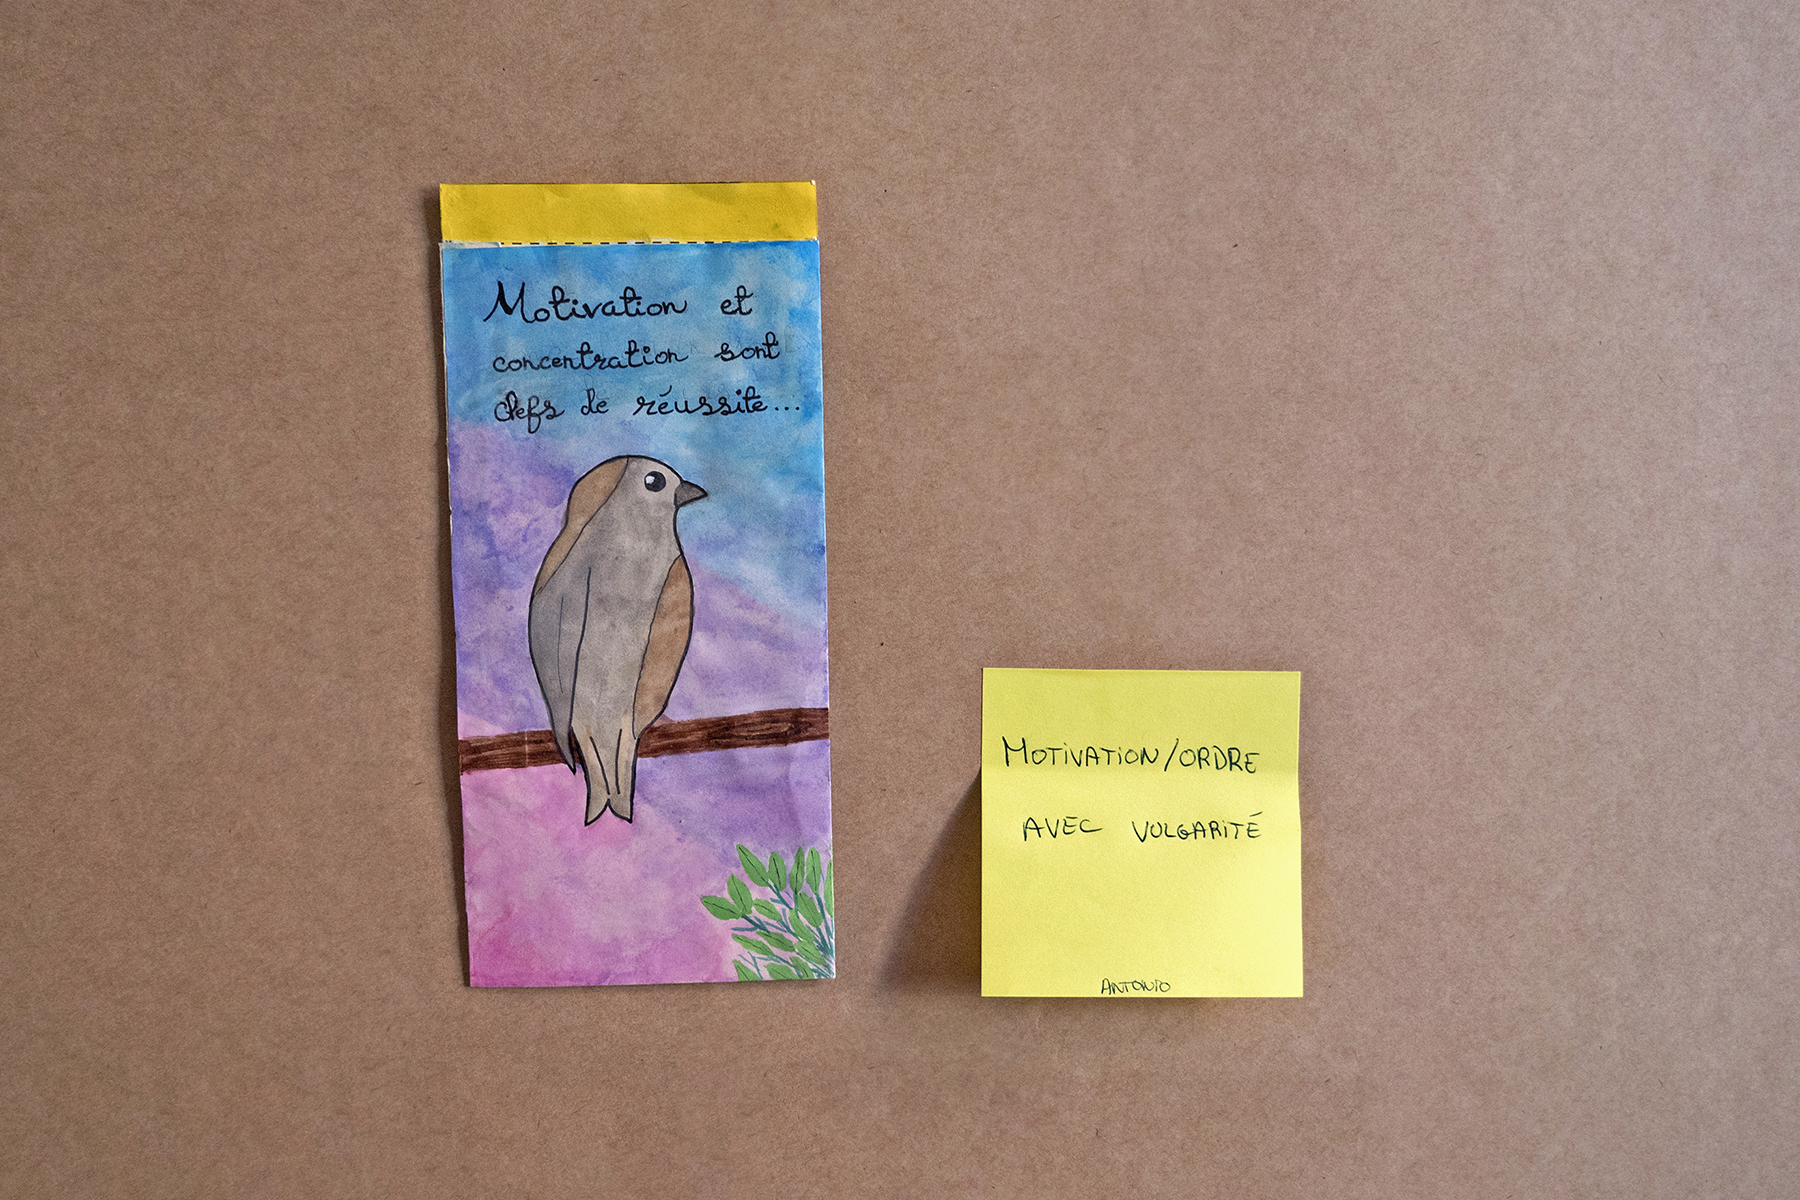 Motivation et
concentration sont
clefs de réussite...
MOTIVATION/ORDRE
AVEC VULGARITÉ
ANTONIO